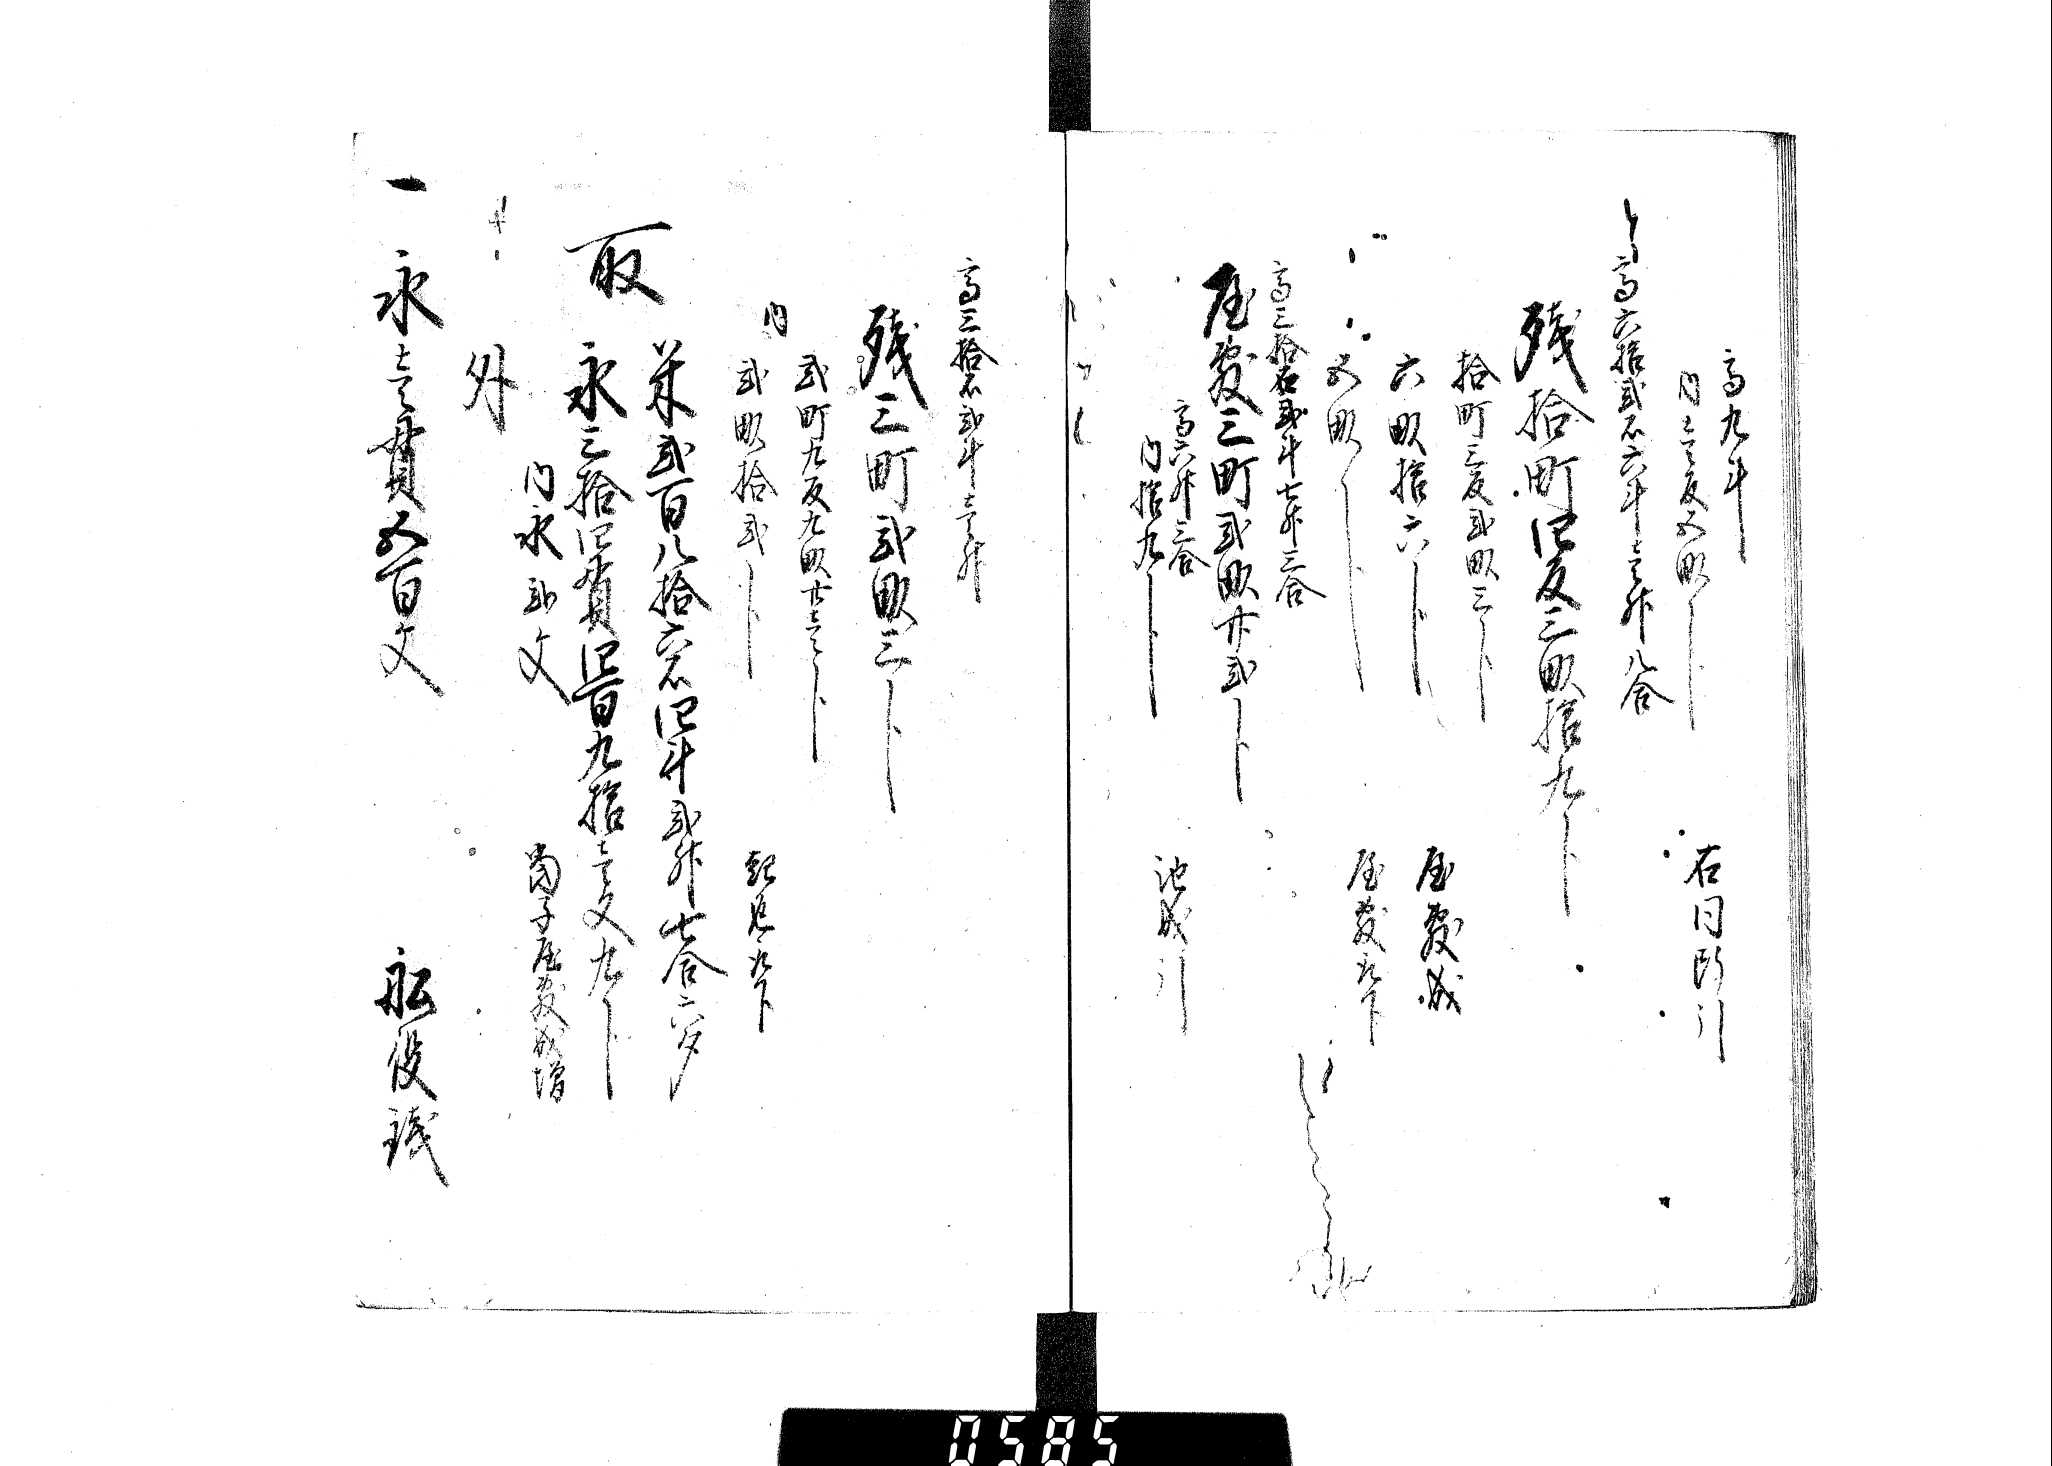 高九斗
内壱反五畝卜 右同断引
高六拾弐石六斗壱升八合
残拾町四反三畝拾九卜
拾町三反弐畝三卜
六畝拾六卜 屋敷成
五畝卜 屋敷九下
高三拾石弐斗七升三合
屋敷三町弐畝廿弐卜
高六升三合
内拾九卜 池成引
高三拾石弐斗壱升
残三町弐畝三卜
弐町九反九畝廿壱卜
内
弐畝拾弐卜 起返九下
米弐百八拾六石四斗弐升七合六夕
取
永三拾四貫四百九拾壱文九卜
内永弐文 当子屋敷成増
外
一 永壱貫五百文 船役銭
0585